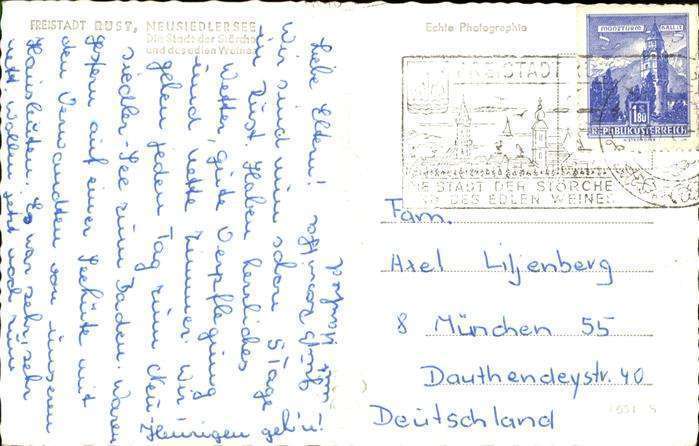 FREISTADT RUST, NEUSIEDLERSEE
Die Stadt der Störche
und des edlen Weines
Echte Photographie
MÜNZTURM HALL I.T.
1.80
REPUBLIK ÖSTERREICH
FREISTADT
DIE STADT DER STÖRCHE
UND DES EDLEN WEINES
Liebe Eltern!
Wir sind nun schon 5 Tage
in Rust. Haben herrliches
Wetter, gute Verpflegung
und nette Zimmer. Wir
gehen jeden Tag zum Neu-
siedler See zum Baden. Waren
gestern auf einer Seehütte mit
den Verwandten von unseren
Hausleuten. Es war sehr, sehr
nett. Wollen jetzt noch zum
Heurigen geh'n!
Fam.
Axel Liljenberg
8 München 55
Dauthendeystr. 40
Deutschland